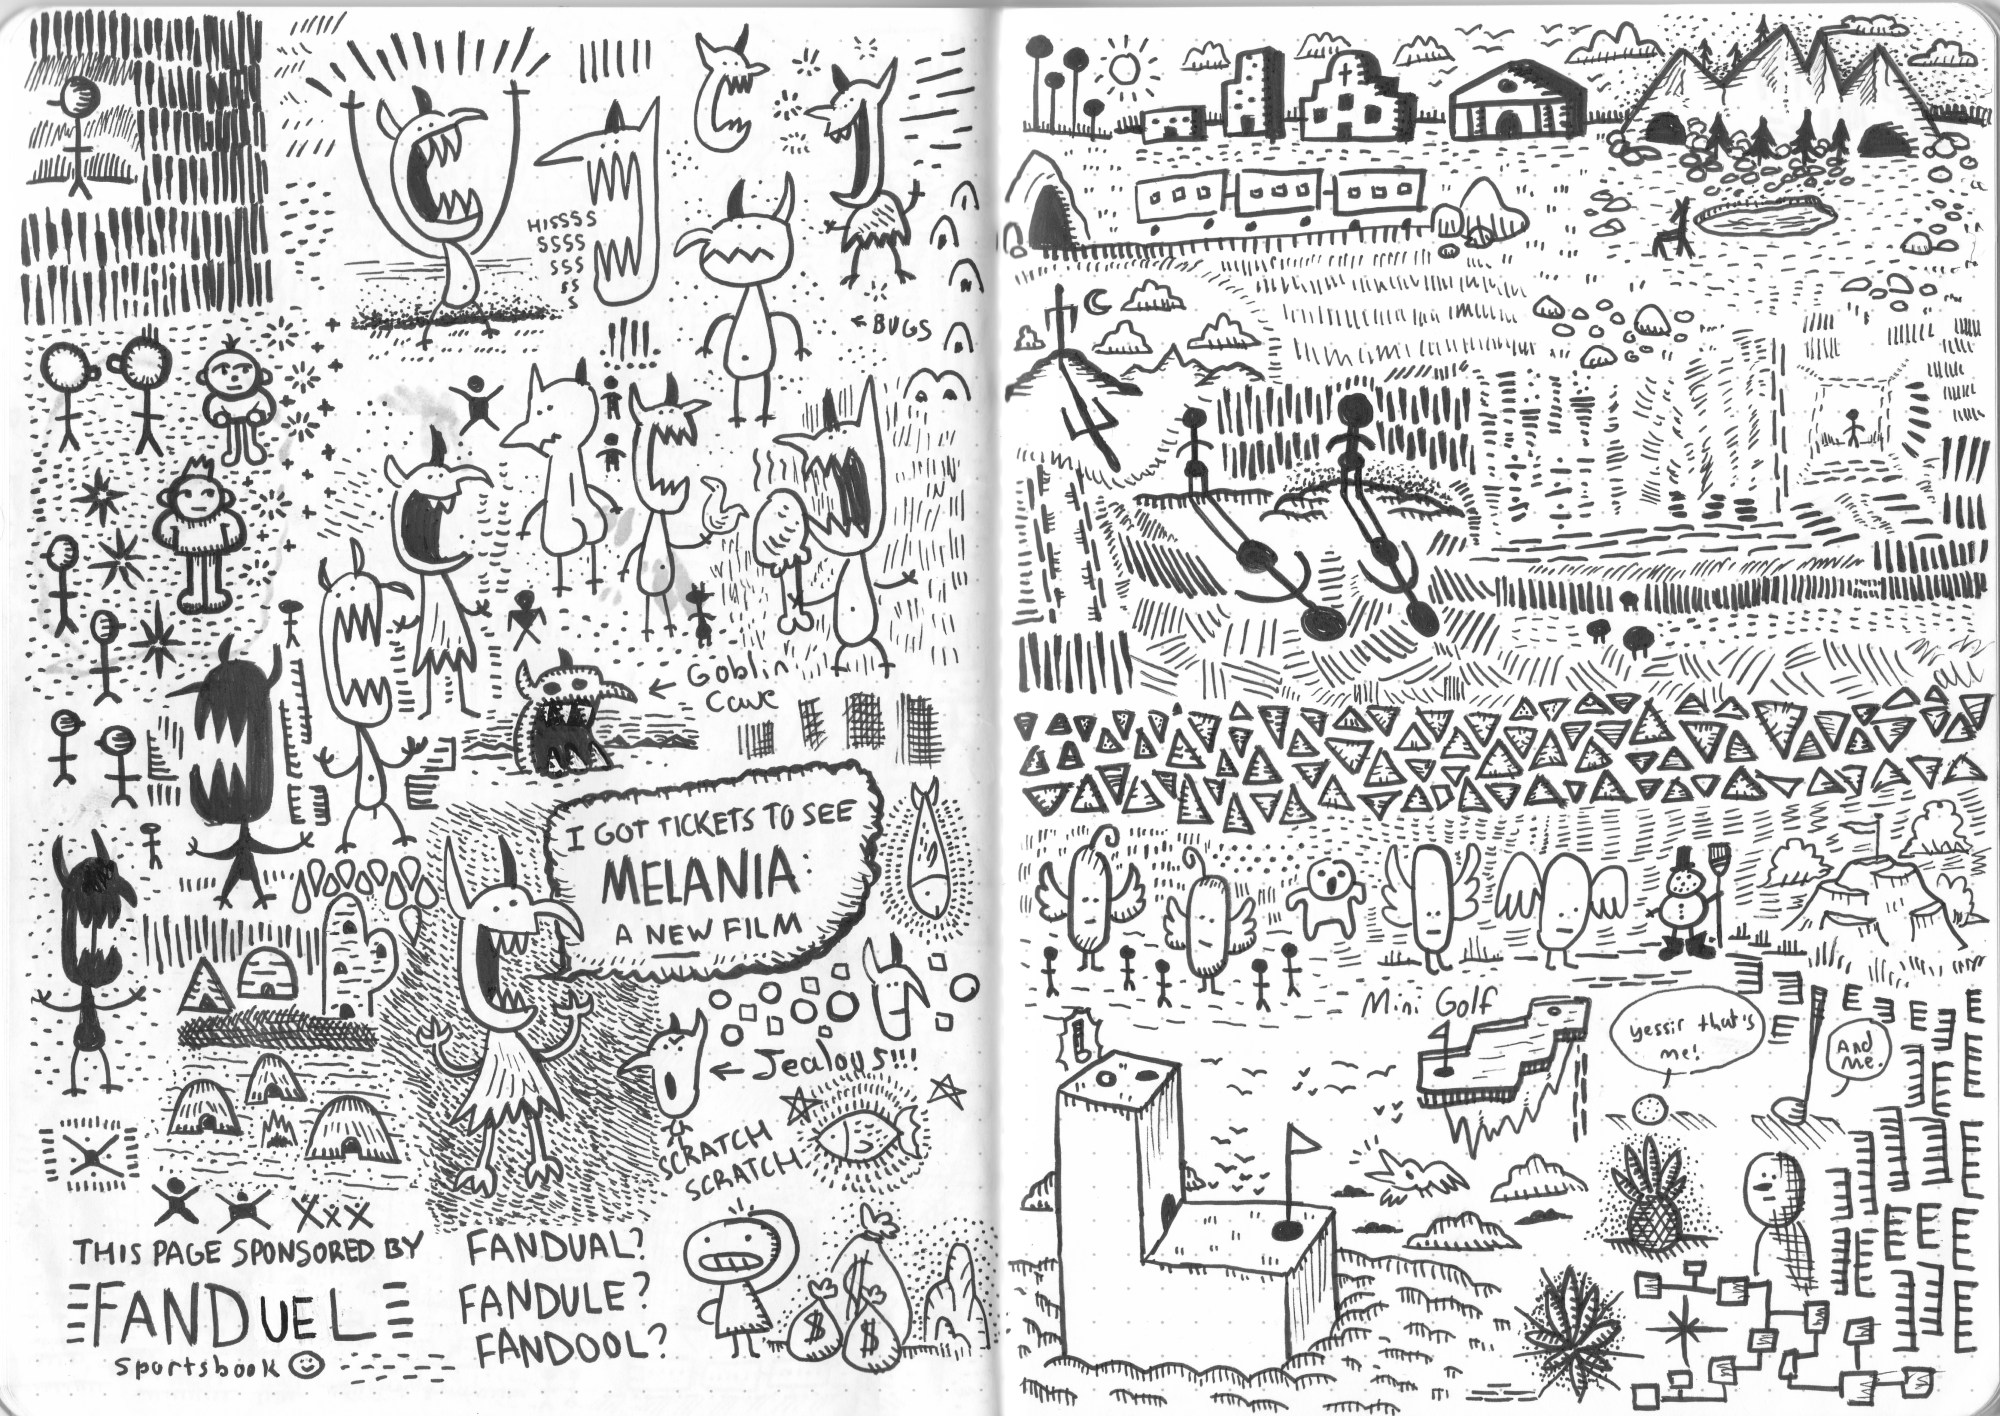 HISSSS
SSSS
SSS
SS
S
← BUGS
← Goblin
Cave
I GOT TICKETS TO SEE
MELANIA:
A NEW FILM
← Jealous!!!
SCRATCH
SCRATCH
THIS PAGE SPONSORED BY
FANDUEL
Sportsbook
FANDUAL?
FANDULE?
FANDOOL?
$
$
$
Mini Golf
!
yessir that's
me!
And
me.